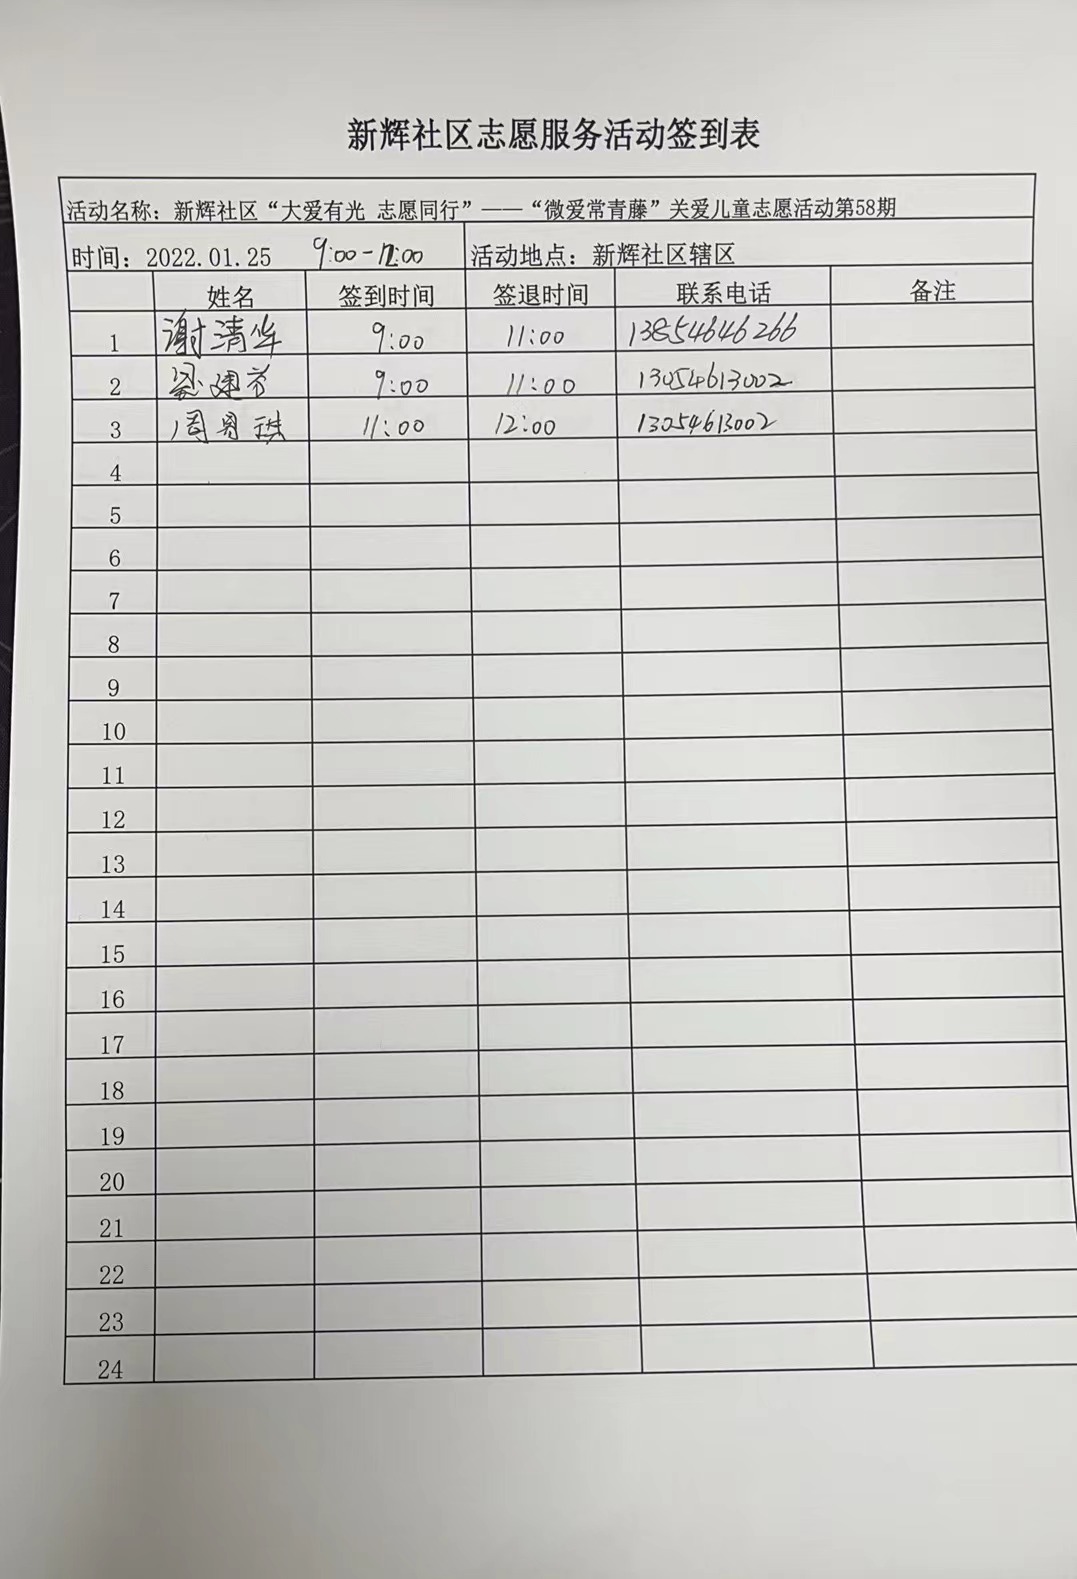 新辉社区志愿服务活动签到表
活动名称：新辉社区“大爱有光 志愿同行”——“微爱常青藤”关爱儿童志愿活动第58期
时间：2022.01.25 9:00-12:00 活动地点：新辉社区辖区
姓名 签到时间 签退时间 联系电话 备注
1 谢清华 9:00 11:00 13854646266
2 梁建芳 9:00 11:00 13054613002
3 周 11:00 12:00 13054613002
4
5
6
7
8
9
10
11
12
13
14
15
16
17
18
19
20
21
22
23
24